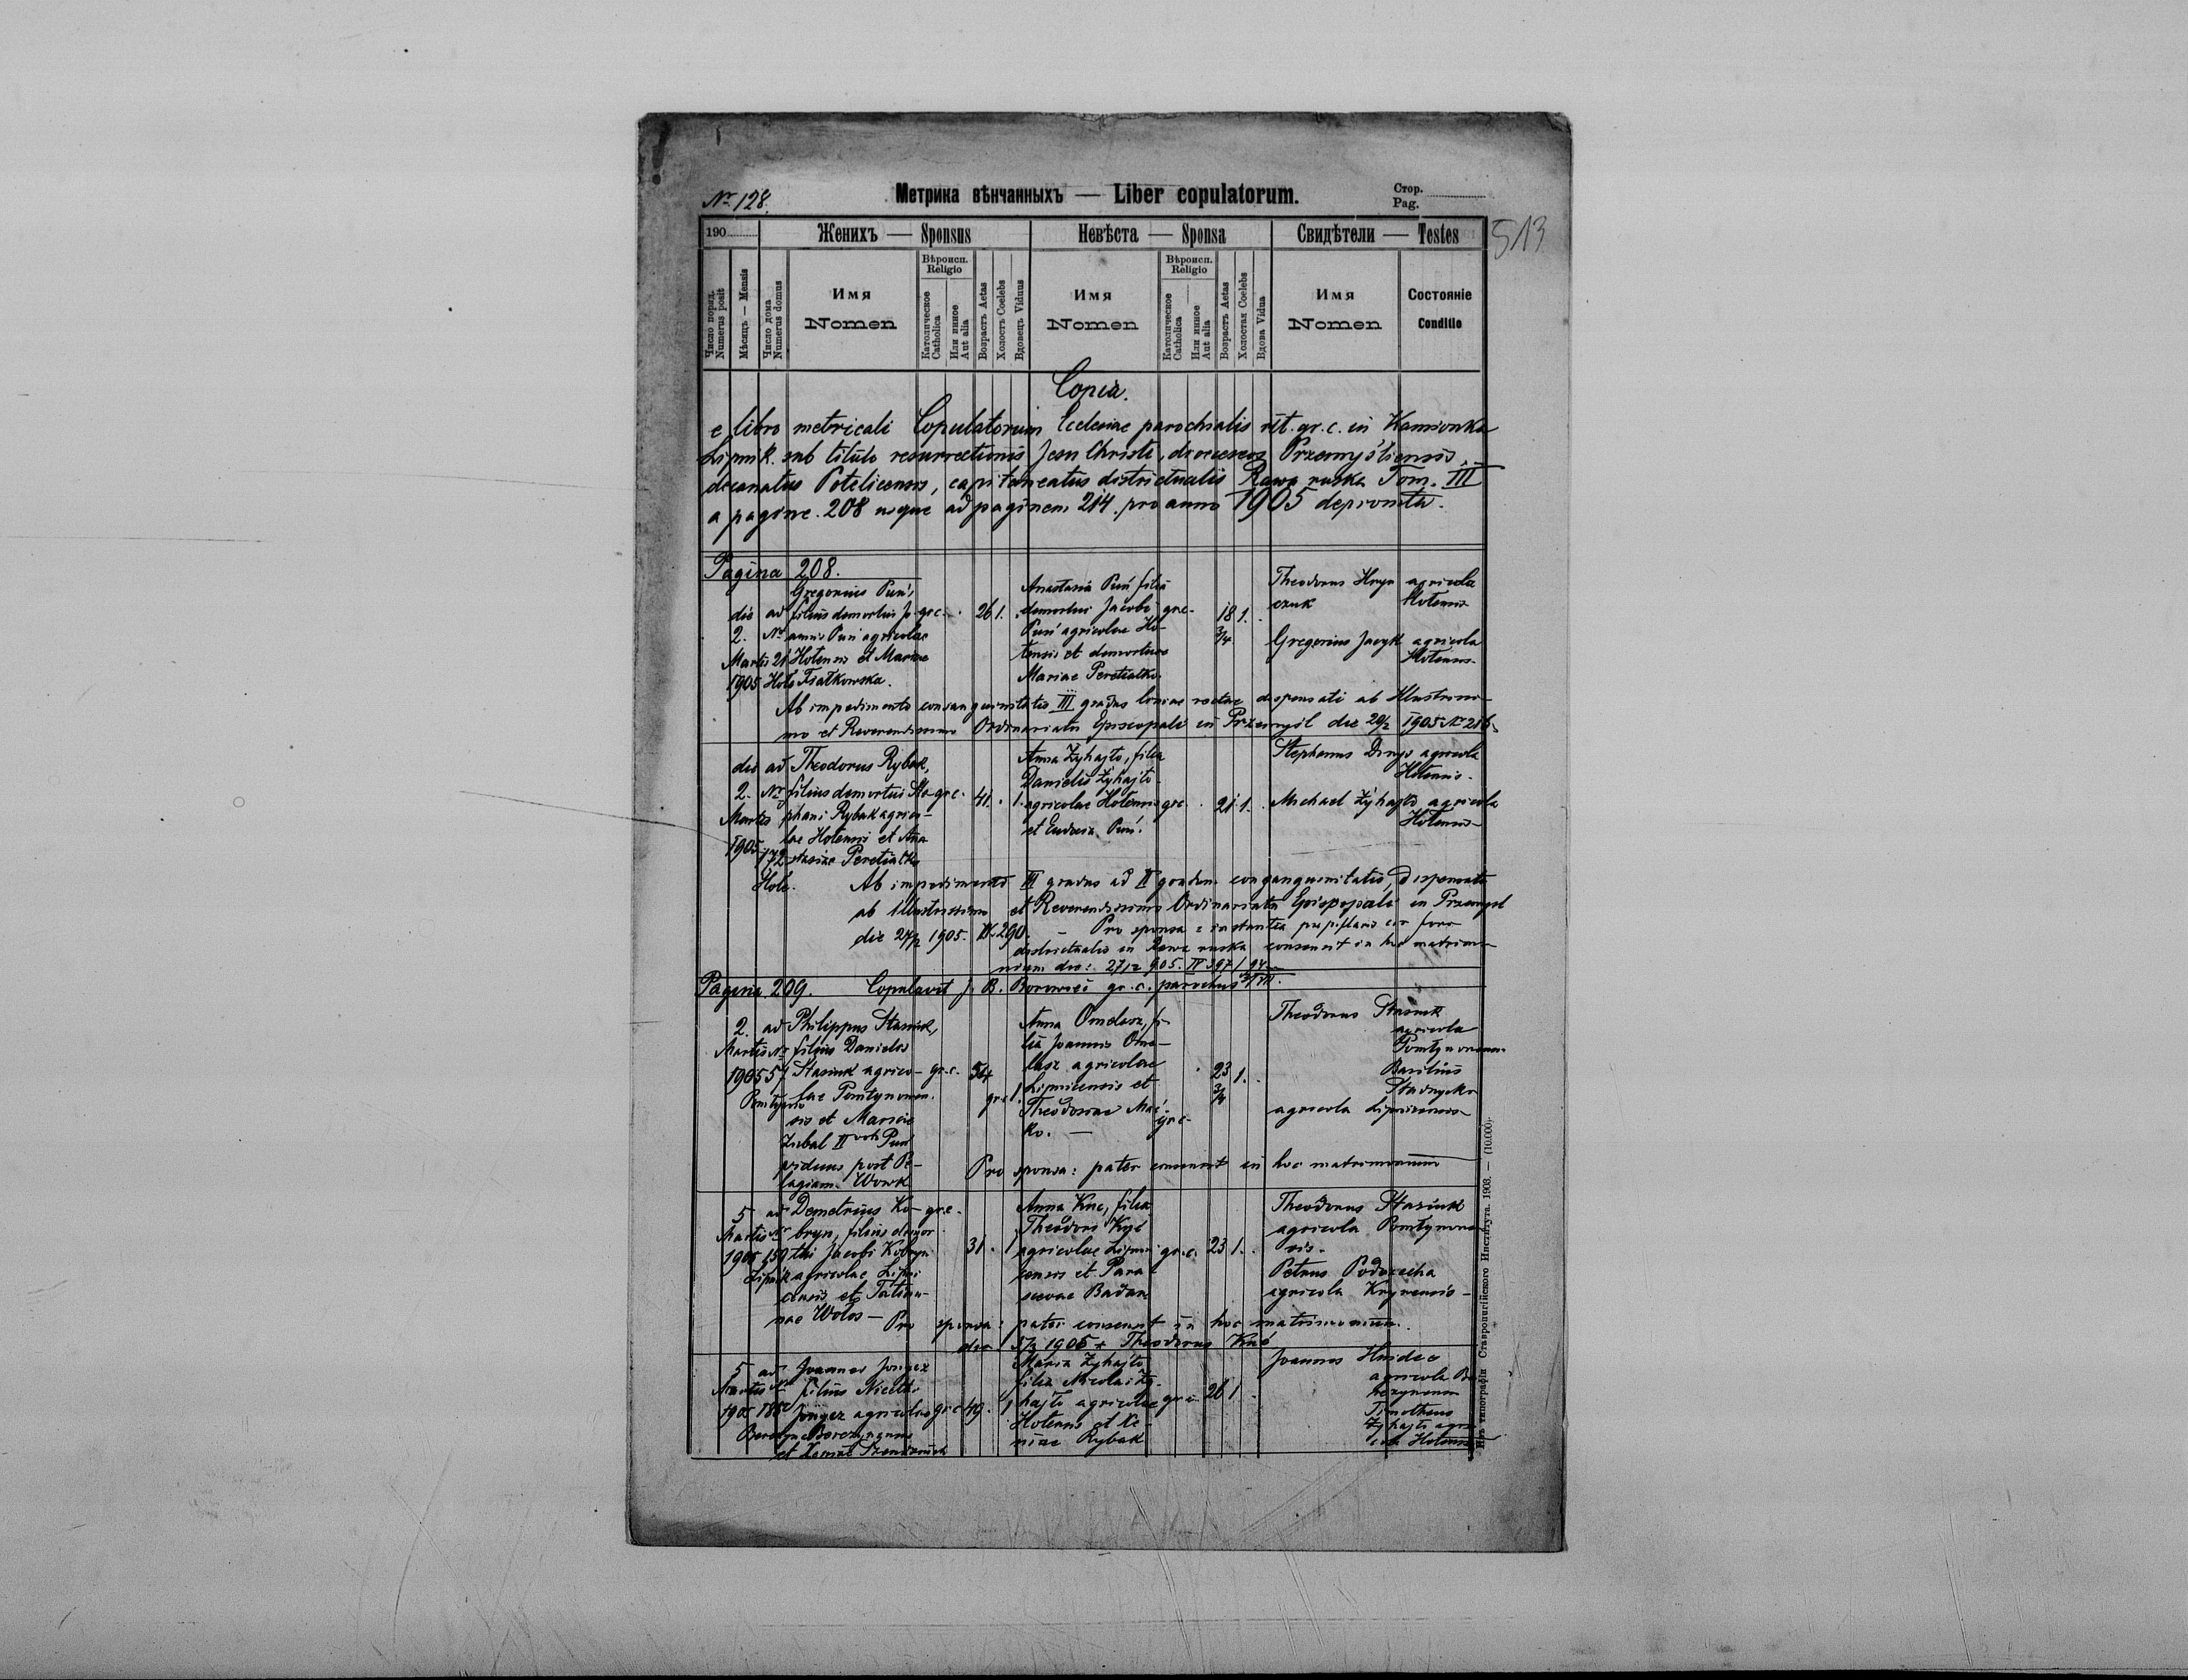 № 128.
Метрика вѣнчанныхъ — Liber copulatorum.
Стор.
Pag.
513
190
Женихъ — Sponsus
Невѣста — Sponsa
Свидѣтели — Testes
Число поряд.
Numerus posit
Мѣсяцъ — Mensis
Число дома
Numerus domus
Имя
Nomen
Вѣроисп.
Religio
Католическое
Catholica
Или инное
Aut alia
Возрастъ Aetas
Холостъ Coelebs
Вдовецъ Viduus
Имя
Nomen
Вѣроисп.
Religio
Католическое
Catholica
Или инное
Aut alia
Возрастъ Aetas
Холостая Coelebs
Вдова Vidua
Имя
Nomen
Состояніе
Conditio
Copia.
e libro metricali Copulatorum Ecclesiae parochialis rit. gr. c. in Kamionka
Lipnik. sub titulo resurrectionis Jesu Christi, dioeceseos Przemyśliensis,
decanatus Potelicensis, capitaneatus districtualis Rawa ruska Tom. III
a pagina 208 usque ad paginem 214. pro anno 1905
Pagina 208.
die 2. Martis 1905
ad № 21 Hole
Gregorius Puń,
filius demortui
Puń agricolae
Hotensis et Mariae
gr. c.
26 1.
Anastasia Puń filia
demortui Jacobi
Puń agricolae Ho-
tensis et demortuae
Mariae Peretiatko.
gr. c.
18 3/4 1.
Theodorus
agricola
Hotensis
Gregorius Jacyk
agricola
Hotensis
Ab impedimento consanguinitatis III gradus lineae rectae dispensati ab Illustrissi-
mo et Reverendissimo Ordinariatu Episcopali in Przemyśl die 20/2 1905 № 216.
die 2. Martis 1905
ad № 172 Hole.
Theodorus Rybak,
filius demortui Ste-
phani Rybak agrico-
lae Hotensis et Ana
stasiae Peretiatko
gr. c.
41. 1.
Anna Żyhajto, filia
Danielis Żyhajto
agricolae Hotensis
et Eudocia Puń.
gr. c.
21. 1.
Stephanus
agricola
Hotensis.
Michael Żyhajto agricola
Hotensis
Ab impedimento III gradus ad II gradum consanguinitatis, dispensati
ab Illustrissimo et Reverendissimo Ordinariatu Episcopali in Przemyśl
die 27/2 1905. № 290. — Pro sponsa: instantia pupillaris
districtualis in Rawa ruska consensit in hoc matrimo-
nium die: 27/2 905.
Pagina 209. Copulavit J. B. Borowiec gr. c. parochus
2. Martis 1905
ad № 57
Philippus Stasiuk,
filius Danielis
Stasiuk agrico-
lae
sis et Mariae
viduus post Pe-
lagiam Wowk
gr. c.
Anna Omelasz, fi-
lia Joannis Ome-
lasz agricolae
Lipnicensis et
Theodosiae Mać-
ko. —
gr. c.
23 3/4 1.
Theodorus Stasiuk
agricola
Basilius
agricola Lipnicensis
Pro sponsa: pater consensit in hoc matrimonium
5 Martis 1905
ad № 159 Lipnik
Demetrius Ko-
bryn, filius demor
tui Jacobi Kobryn
agricolae Lipni
censis et Tatian-
nae Wołos —
gr. c.
31. 1
Anna Kuc, filia
Theodori Kuć
agricolae Lipni
censis et Para
scevae Badan
gr. c.
23 1.
Theodorus Stasiuk
agricola
sis.
Petrus
agricola
Pro sponsa: pater consensit in hoc matrimonium.
die 5/3 1905 + Theodorus Kuć
5 Martis 1905
ad №
Joannes
filius
agricolae
gr. c.
49. 1
Maria Żyhajto
filia Nicolai Ży-
hajto agricolae
Hotensis et Xe-
niae Rybak
gr. c.
26 1
Joannes
agricola
Timotheus
Żyhajto agri-
cola Hotensis
Изъ типографіи Ставропигійского Института. 1903. — (10.000).